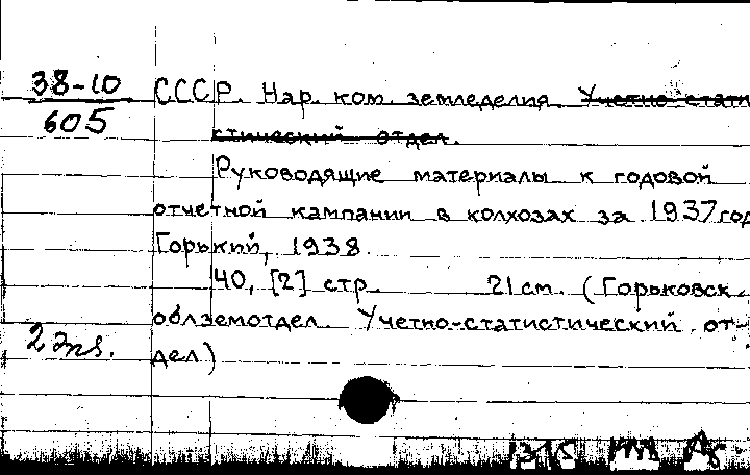 38-10
605
СССР. Нар. ком. земледелия. Учетно-стати
стический отдел.
Руководящие материалы к годовой
отчетной кампании в колхозах за 1937 год
Горький, 1938.
40, [2] стр. 21 см. (Горьковск.
облземотдел. Учетно-статистический от-
дел)
2 экз.